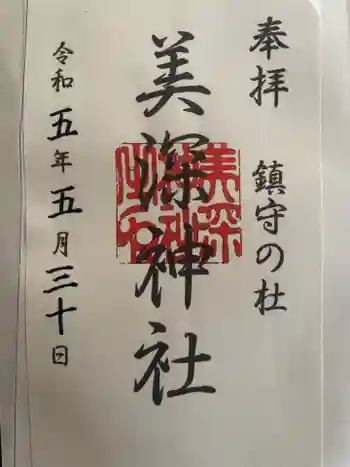 奉拝 鎮守の杜
美深神社
美深
令和五年五月三十日